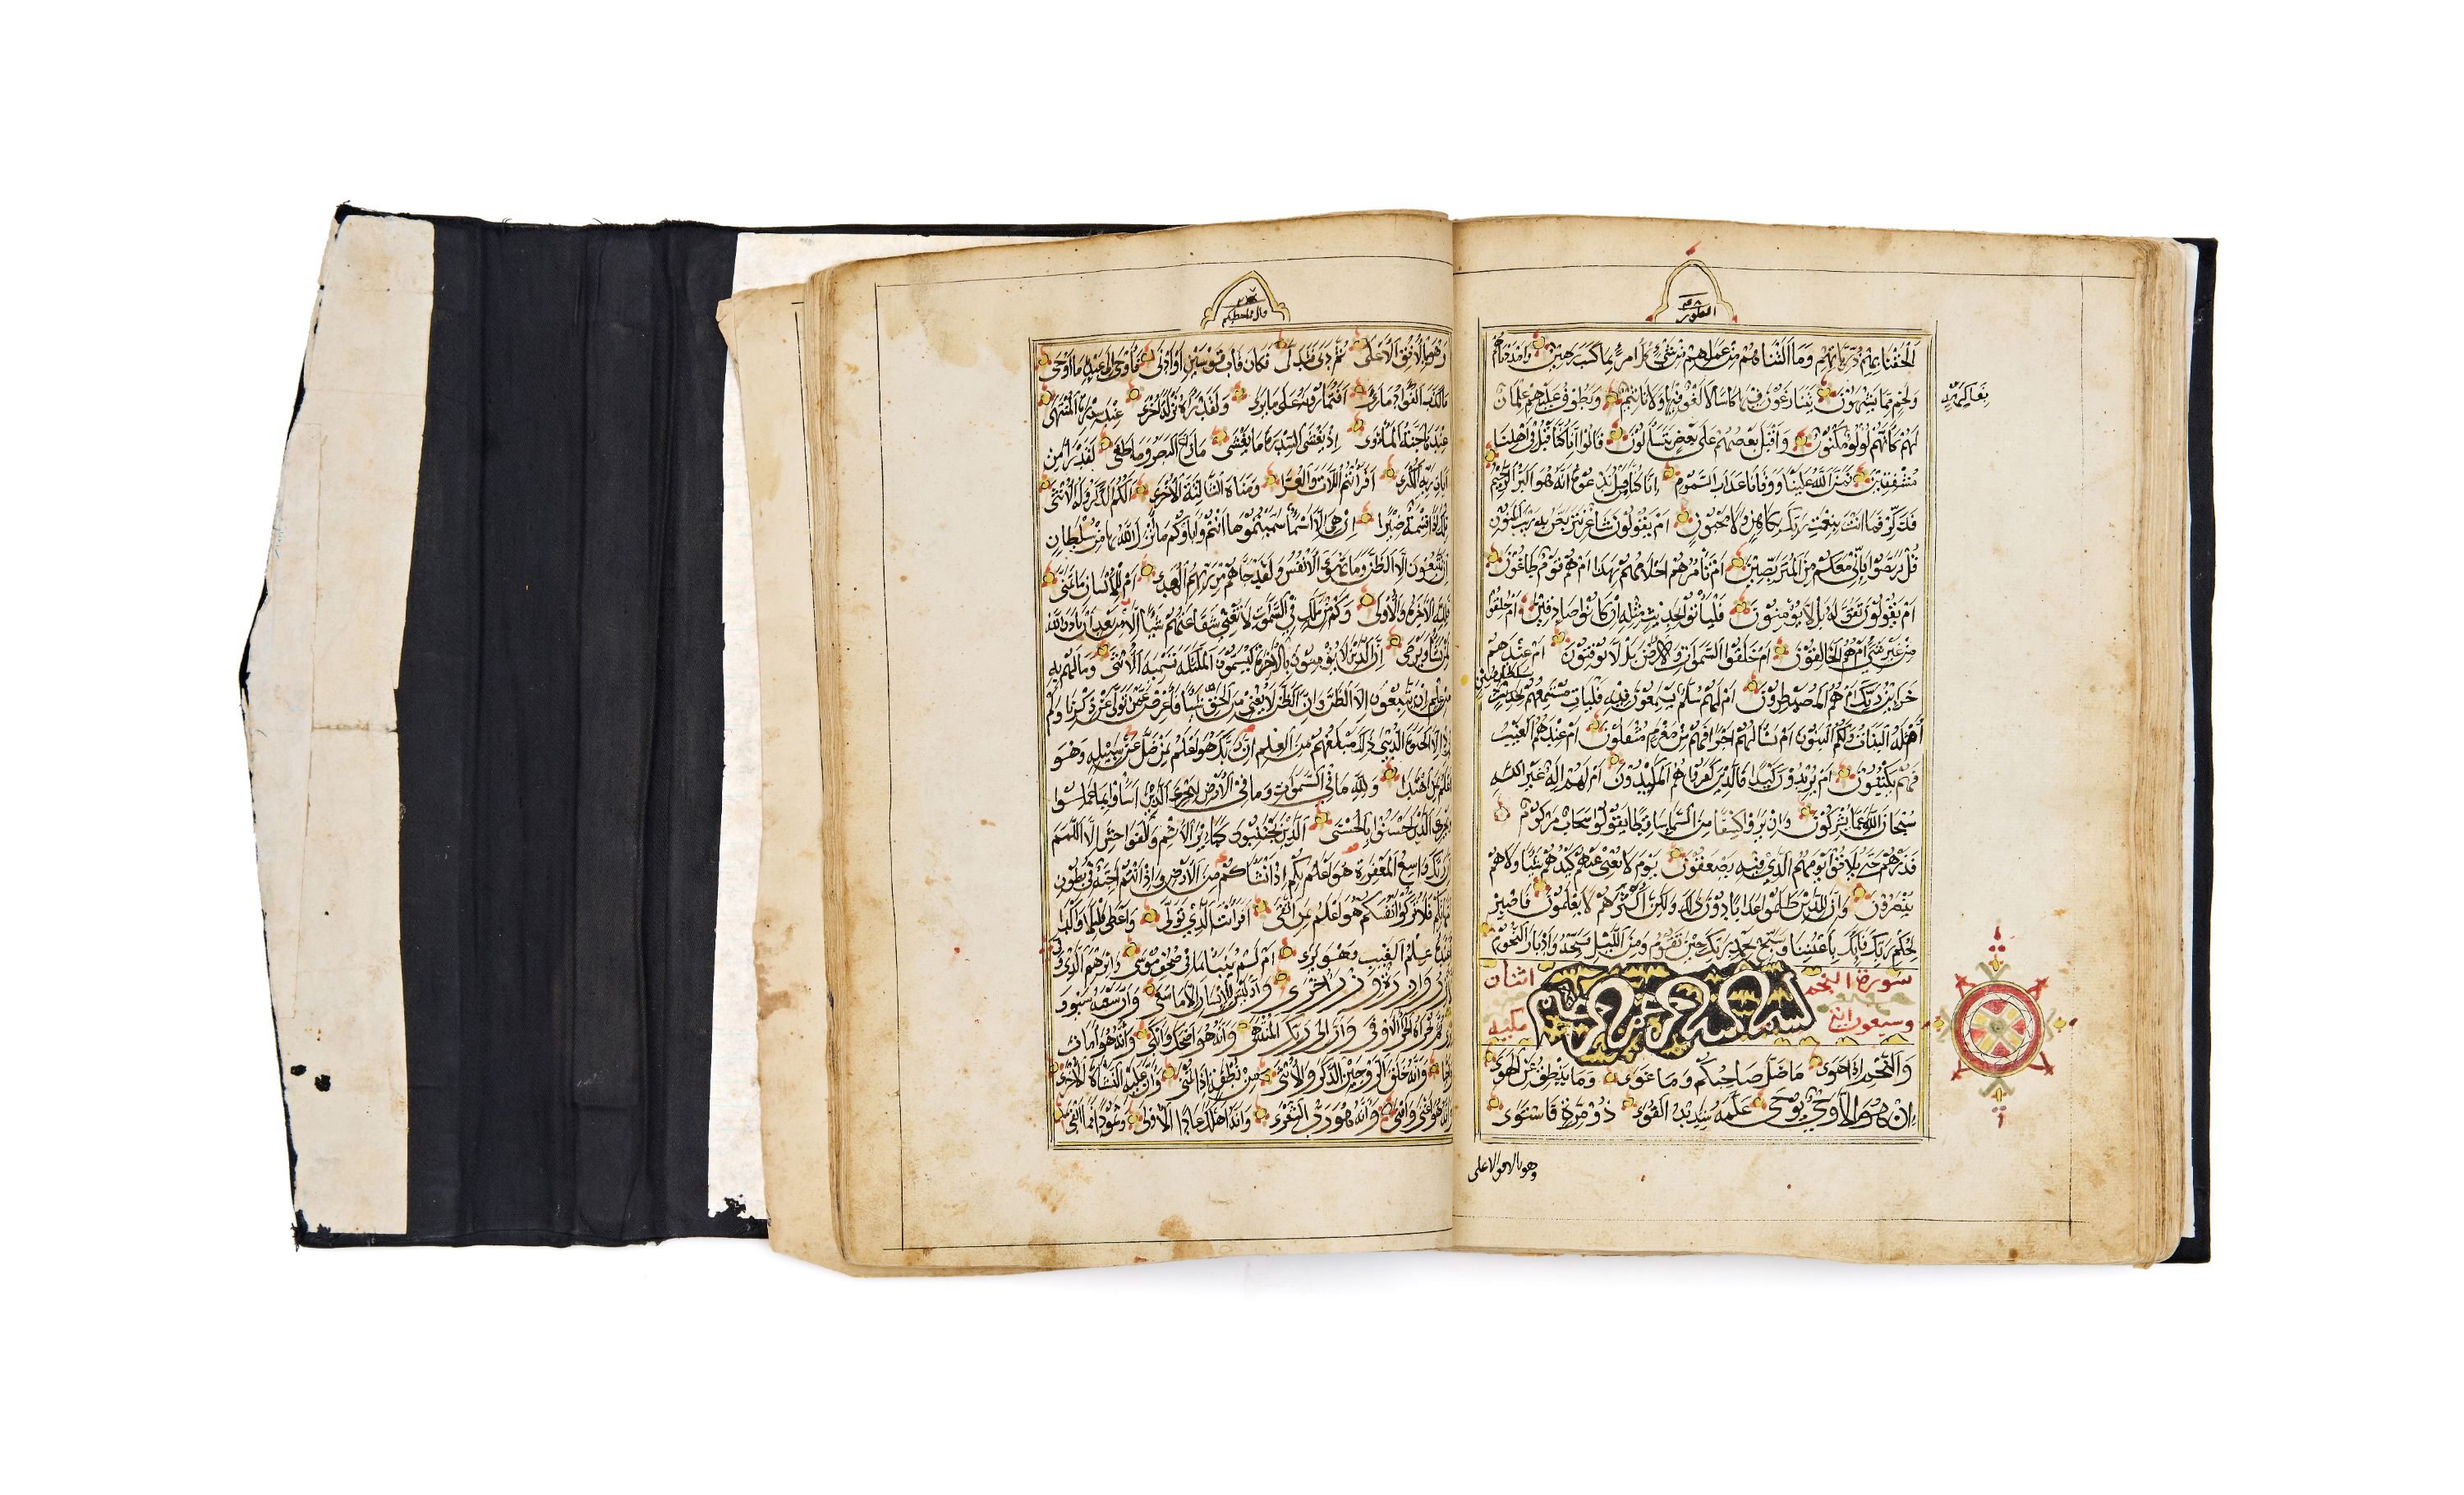 الطور
الحقنا بهم ذرياتهم وما التناهم من عملهم من شيء كل امرئ بما كسب رهين وامددناهم
بفاكهة
ولحم مما يشتهون يتنازعون فيها كاسا لا لغو فيها ولا تاثيم ويطوف عليهم غلمان
لهم كانهم لؤلؤ مكنون واقبل بعضهم على بعض يتساءلون قالوا انا كنا قبل في اهلنا
مشفقين فمن الله علينا ووقانا عذاب السموم انا كنا من قبل ندعوه انه هو البر الرحيم
فذكر فما انت بنعمت ربك بكاهن ولا مجنون ام يقولون شاعر نتربص به ريب المنون
قل تربصوا فاني معكم من المتربصين ام تامرهم احلامهم بهذا ام هم قوم طاغون
ام يقولون تقوله بل لا يؤمنون فلياتوا بحديث مثله ان كانوا صادقين ام خلقوا
من غير شيء ام هم الخالقون ام خلقوا السموات والارض بل لا يوقنون ام عندهم
خزاين ربك ام هم المصيطرون ام لهم سلم يستمعون فيه فليات مستمعهم بسلطان مبين
ام له البنات ولكم البنون ام تسالهم اجرا فهم من مغرم مثقلون ام عندهم الغيب
فهم يكتبون ام يريدون كيدا فالذين كفروا هم المكيدون ام لهم اله غير الله
سبحان الله عما يشركون وان يروا كسفا من السماء ساقطا يقولوا سحاب مركوم
فذرهم حتى يلاقوا يومهم الذي فيه يصعقون يوم لا يغني عنهم كيدهم شيئا ولا هم
ينصرون وان للذين ظلموا عذابا دون ذلك ولكن اكثرهم لا يعلمون فاصبر
لحكم ربك فانك باعيننا وسبح بحمد ربك حين تقوم ومن الليل فسبحه وادبار النجوم
سورة النجم اثنان
بسم الله الرحمن الرحيم
وسبعون اية مكية
والنجم اذا هوى ما ضل صاحبكم وما غوى وما ينطق عن الهوى
ان هو الا وحي يوحى علمه شديد القوى ذو مرة فاستوى
وهو بالافق الاعلى
قال فما خطبكم
وهو بالافق الاعلى ثم دنى فتدلى فكان قاب قوسين او ادنى فاوحى الى عبده ما اوحى
ما كذب الفؤاد ما راى افتمارونه على ما يرى ولقد راه نزلة اخرى عند سدرة المنتهى
عندها جنة الماوى اذ يغشى السدرة ما يغشى ما زاغ البصر وما طغى لقد راى من
ايات ربه الكبرى افرايتم اللات والعزى ومناة الثالثة الاخرى الكم الذكر وله الانثى
تلك اذا قسمة ضيزى ان هي الا اسماء سميتموها انتم واباؤكم ما انزل الله بها من سلطان
ان يتبعون الا الظن وما تهوى الانفس ولقد جاءهم من ربهم الهدى ام للانسان ما تمنى
فلله الاخرة والاولى وكم من ملك في السموات لا تغني شفاعتهم شيئا الا من بعد ان ياذن الله
لمن يشاء ويرضى ان الذين لا يؤمنون بالاخرة ليسمون الملئكة تسمية الانثى وما لهم به
من علم ان يتبعون الا الظن وان الظن لا يغني من الحق شيئا فاعرض عمن تولى عن ذكرنا ولم
يرد الا الحيوة الدنيا ذلك مبلغهم من العلم ان ربك هو اعلم بمن ضل عن سبيله وهو
اعلم بمن اهتدى ولله ما في السموات وما في الارض ليجزي الذين اساءوا بما عملوا
ويجزي الذين احسنوا بالحسنى الذين يجتنبون كبائر الاثم والفواحش الا اللمم
ان ربك واسع المغفرة هو اعلم بكم اذ انشاكم من الارض واذ انتم اجنة في بطون
امهاتكم فلا تزكوا انفسكم هو اعلم بمن اتقى افرايت الذي تولى واعطى قليلا واكدى
اعنده علم الغيب فهو يرى ام لم ينبا بما في صحف موسى وابراهيم الذي وفى
الا تزر وازرة وزر اخرى وان ليس للانسان الا ما سعى وان سعيه سوف
يرى ثم يجزاه الجزاء الاوفى وان الى ربك المنتهى وانه هو اضحك وابكى وانه هو امات
واحيا وانه خلق الزوجين الذكر والانثى من نطفة اذا تمنى وان عليه النشاة الاخرى
وانه هو اغنى واقنى وانه هو رب الشعرى وانه اهلك عادا الاولى وثمودا فما ابقى